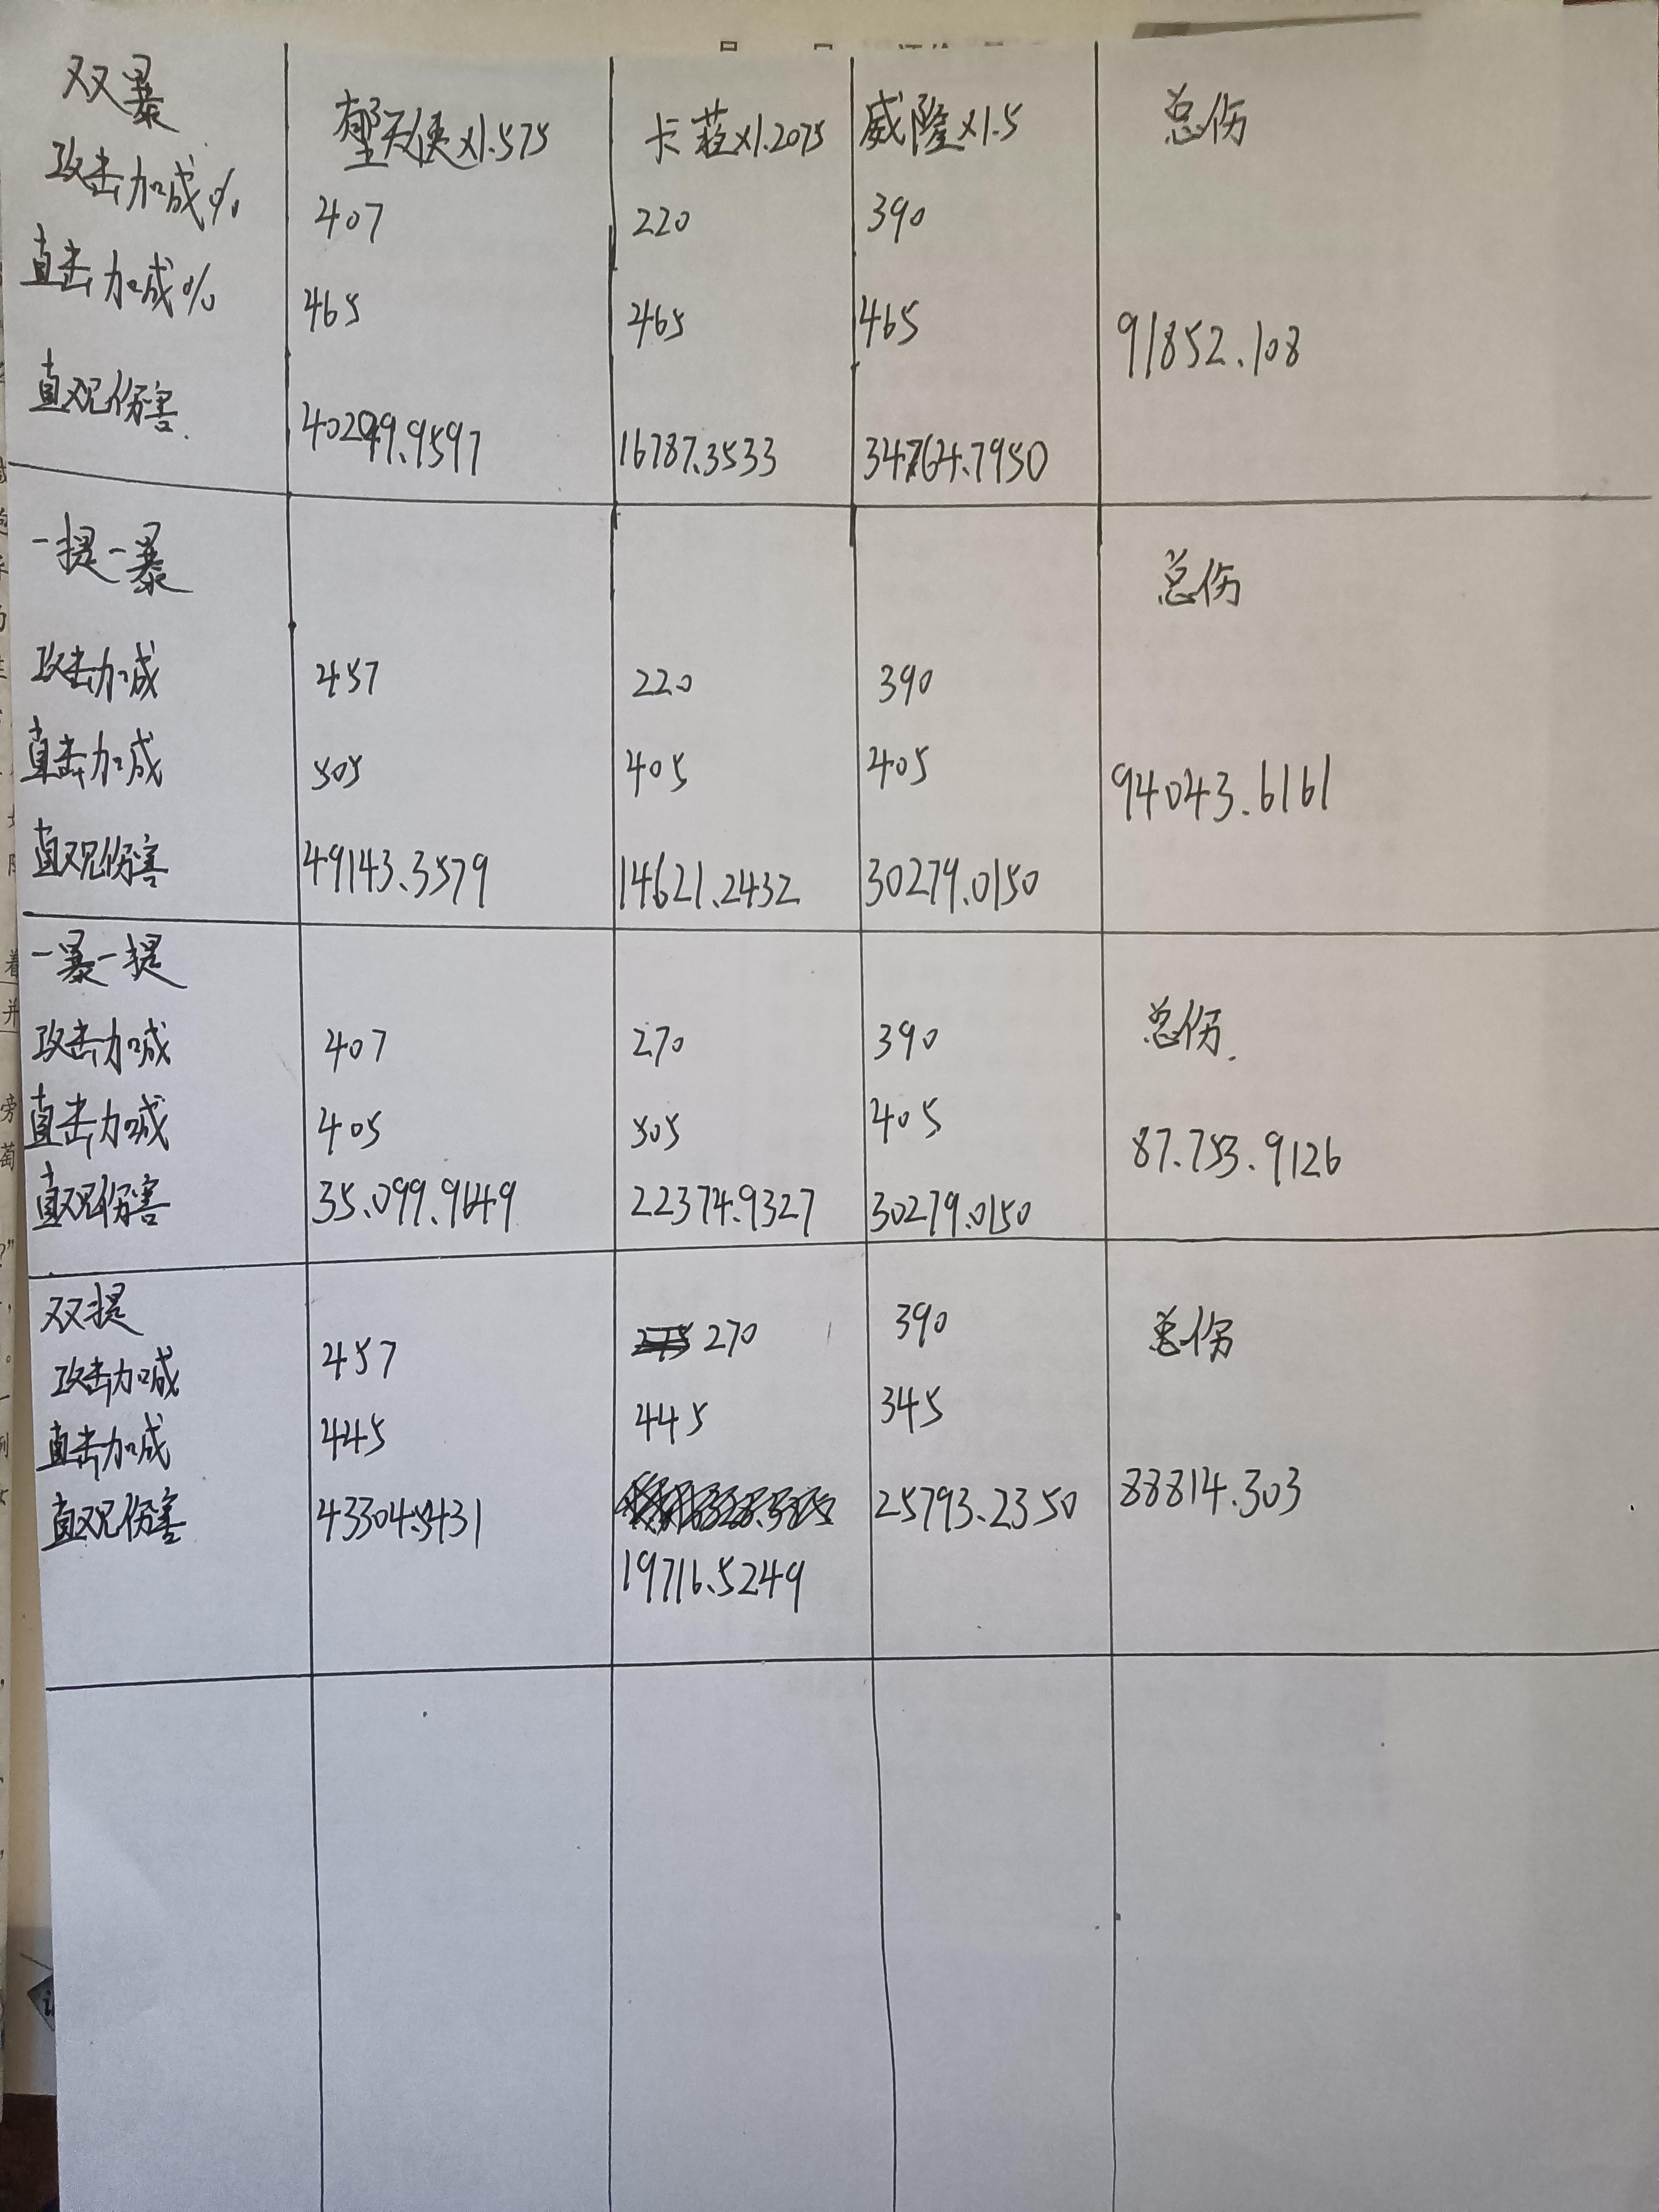 双暴 堕天使x1.575 卡菈x1.2075 威隆x1.5 总伤
攻击加成% 407 220 390
直击加成% 465 465 465 91852.108
直观伤害. 40299.9597 16787.3533 34764.7950
一提一暴 总伤
攻击加成 457 220 390
直击加成 505 405 405 94043.6161
直观伤害 49143.3579 14621.2432 30279.0150
一暴一提 总伤.
攻击加成 407 270 390
直击加成 405 505 405 87.753.9126
直观伤害 35.099.9649 22374.9327 30279.0150
双提 总伤
攻击加成 457 270 390
直击加成 445 445 345
直观伤害 43304.5431 25793.2350 88814.303
19716.5249